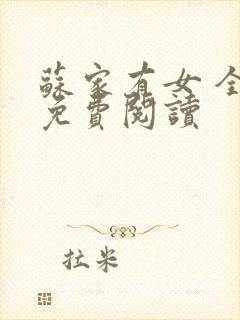 蘇家有女 全
免費閱讀
拉米